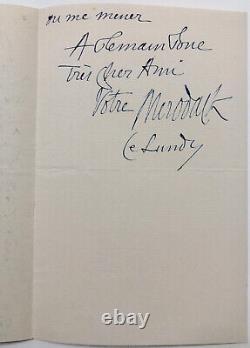 ou me mener
A Demain Donc
très cher Ami
Votre Merodack
Ce Lundy